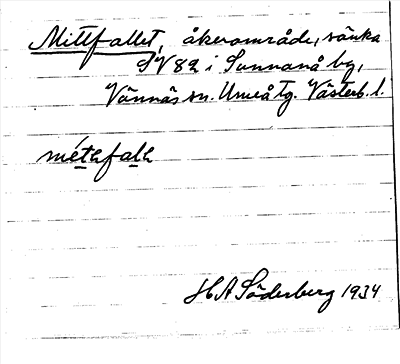 Mittfallet, åkerområde, sänka
SV 82 i Sunnanå by,
Vännäs sn. Umeå tg. Västerb. l.
métfalh
H A Söderberg 1934